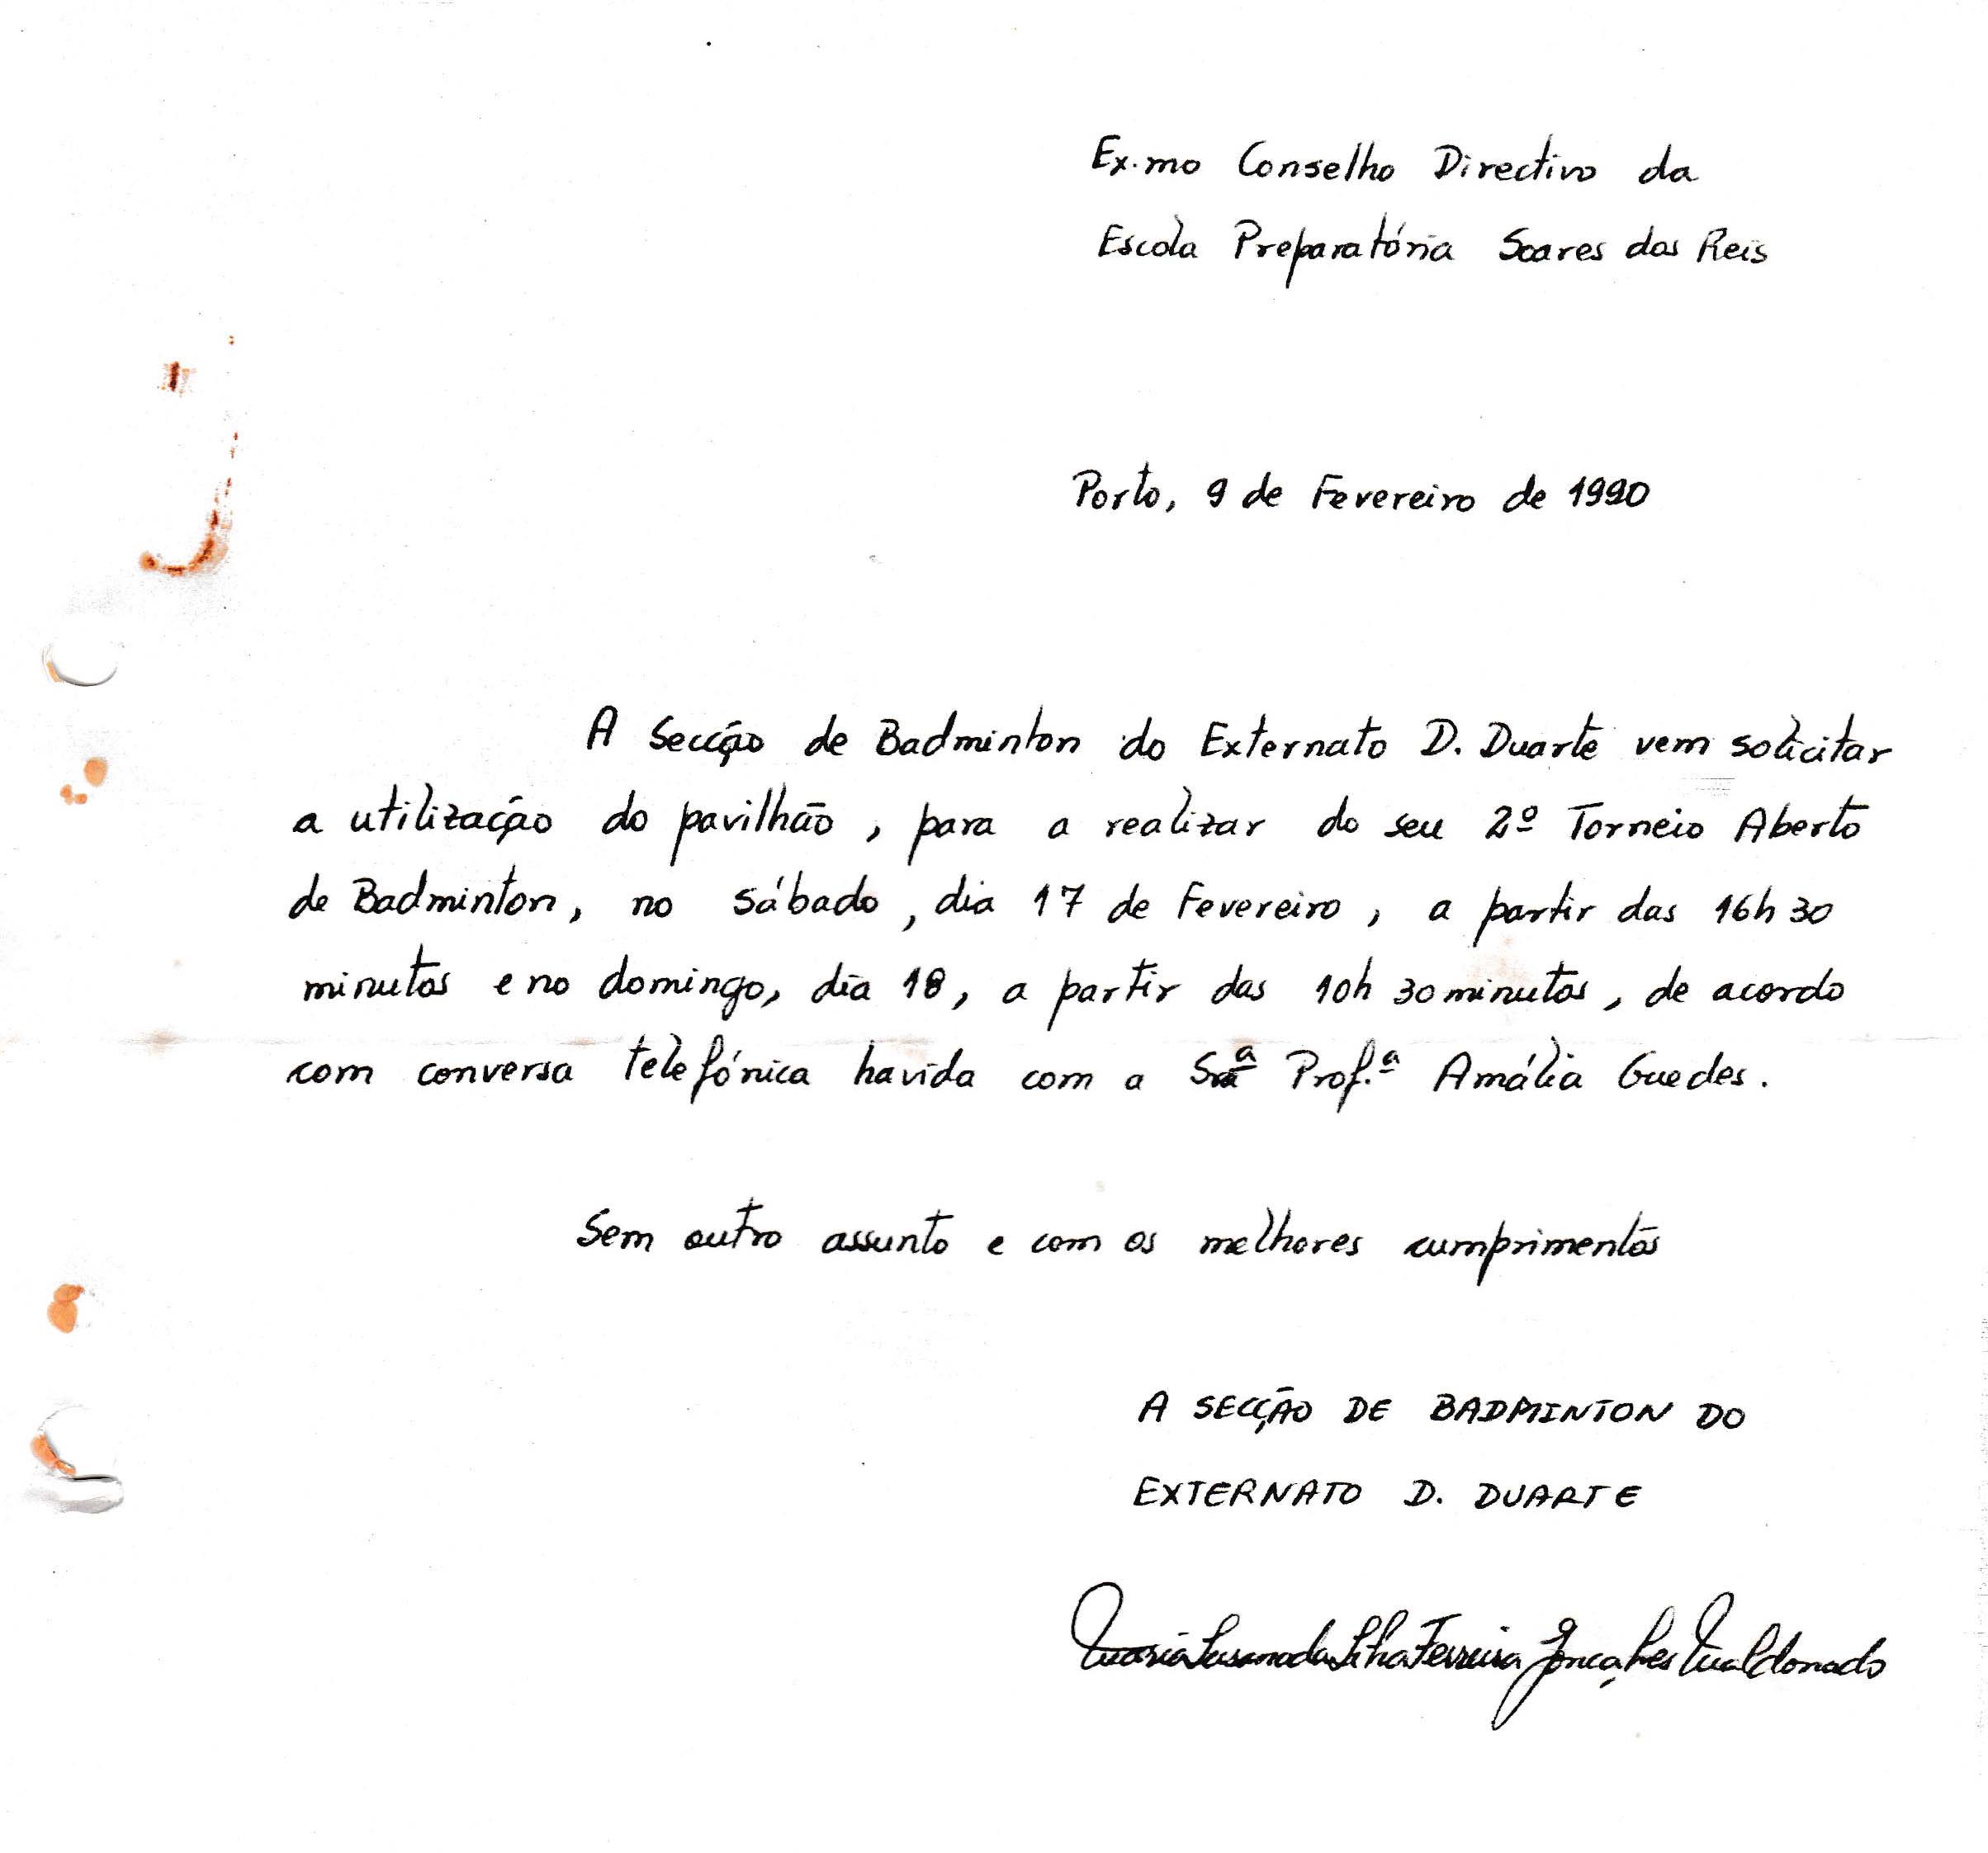 Ex.mo Conselho Directivo da
Escola Preparatória Soares dos Reis
Porto, 9 de Fevereiro de 1990
A Secção de Badminton do Externato D. Duarte vem solicitar
a utilização do pavilhão, para a realizar do seu 2º Torneio Aberto
de Badminton, no sábado, dia 17 de Fevereiro, a partir das 16h 30
minutos e no domingo, dia 18, a partir das 10h 30 minutos, de acordo
com conversa telefónica havida com a Srª Prof.ª Amália Guedes.
Sem outro assunto e com os melhores cumprimentos
A SECÇÃO DE BADMINTON DO
EXTERNATO D. DUARTE
Maria Susana da Silva Ferreira Gonçalves Maldonado